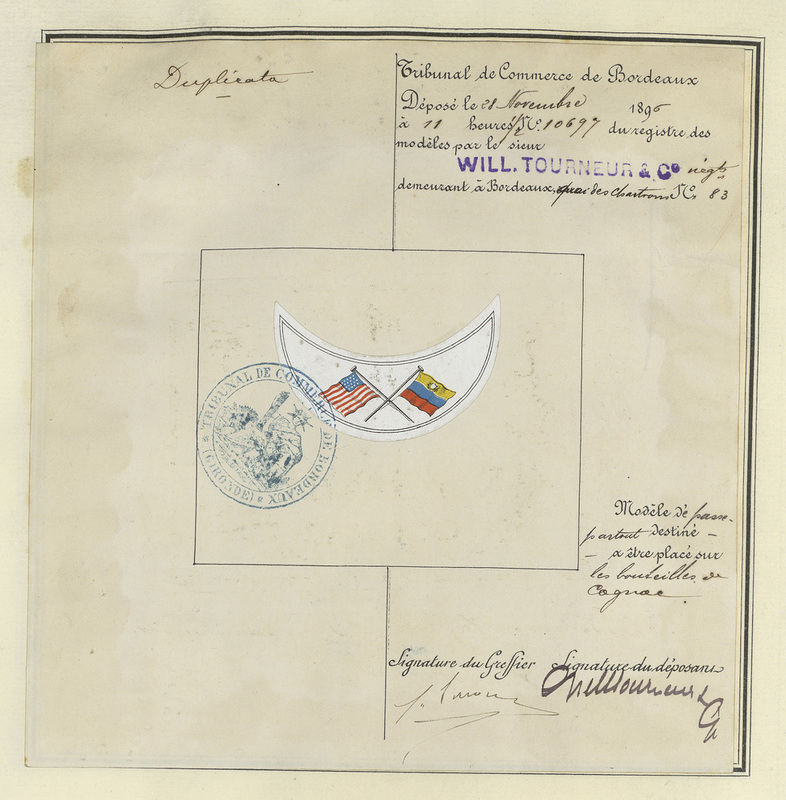 Duplicata
Tribunal de Commerce de Bordeaux
Déposé le 28 Novembre 1896
à 11 heures/2 No. 10697 du registre des
modèles par le sieur
WILL. TOURNEUR & Co négts
demeurant à Bordeaux, quai des Chartrons No 83
TRIBUNAL DE COMMERCE DE BORDEAUX
* (GIRONDE) *
Modèle de passe-
partout destiné -
- a être placé sur
les bouteilles de
Cognac.
Signature du Greffier Signature du déposant
Will Tourneur & Co